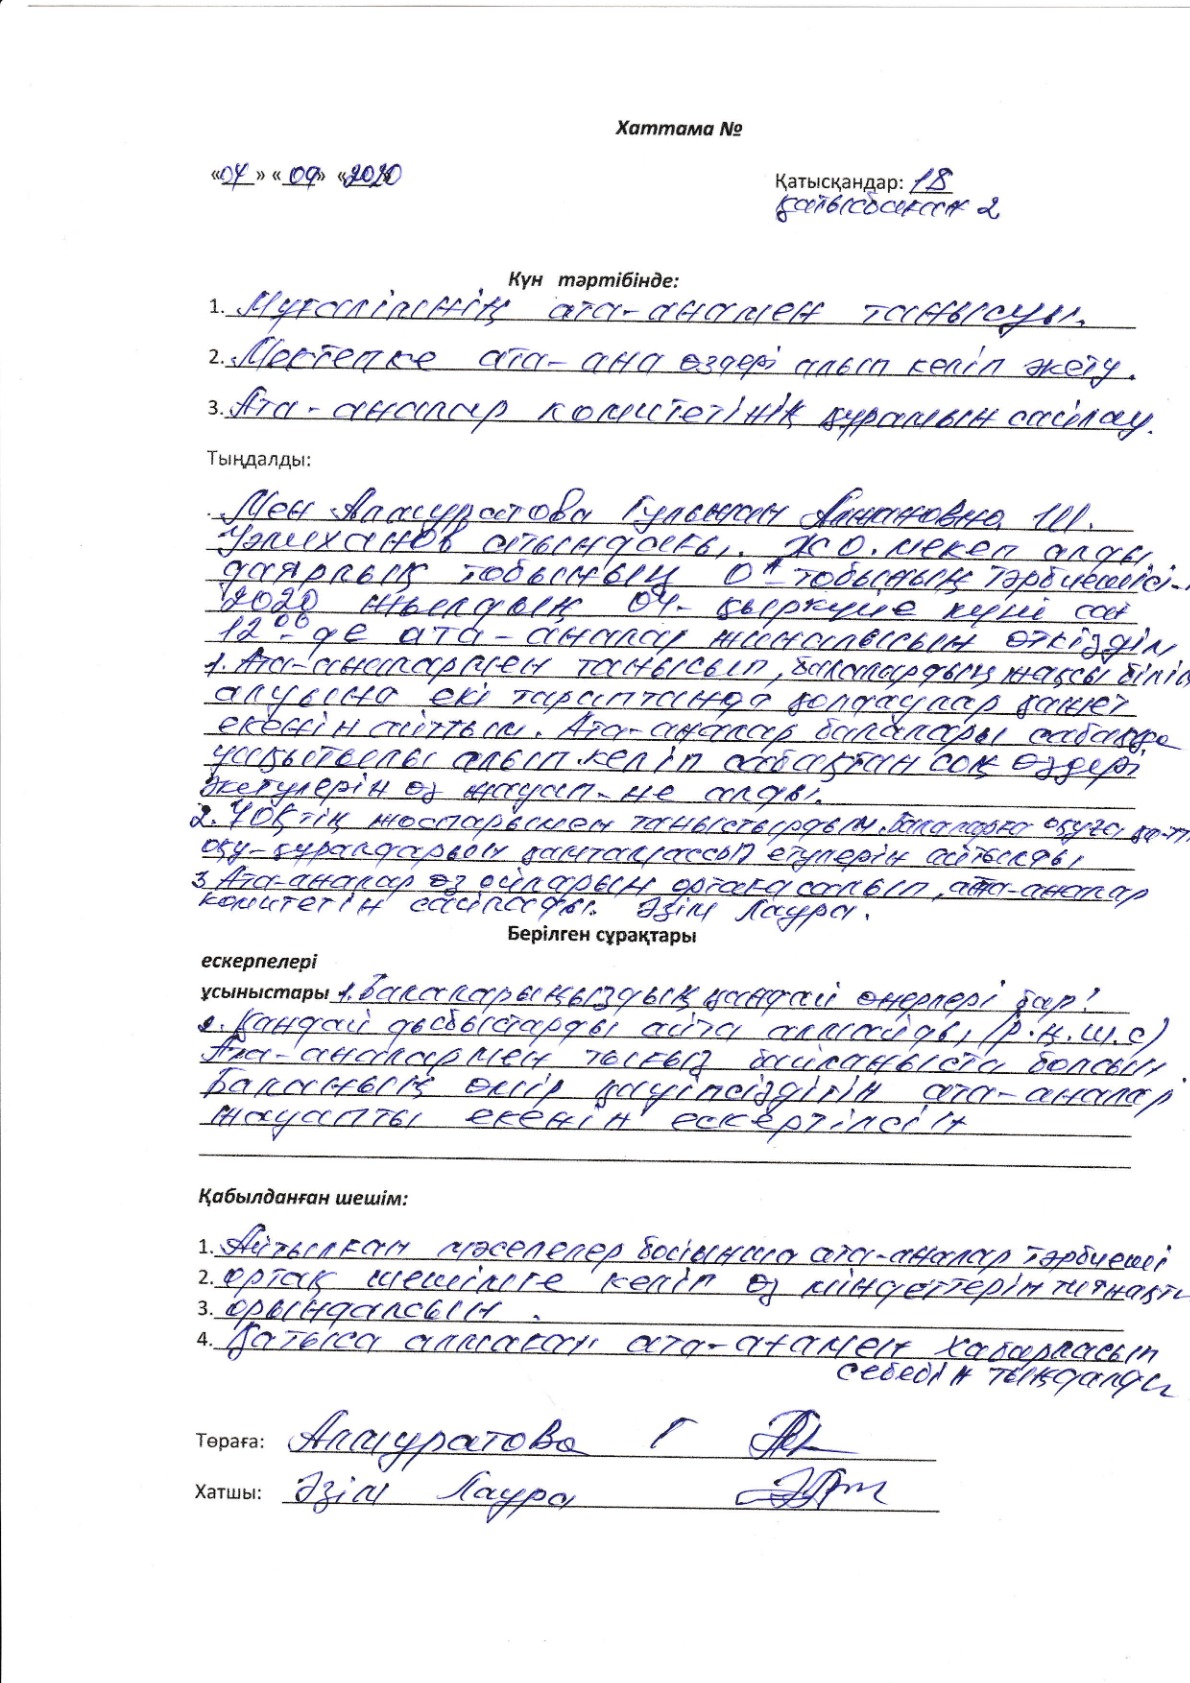 Хаттама №
«04» «09» «2020
Қатысқандар: 18
қатысбаған 2
Күн тәртібінде:
1. Мұғалімнің ата-анамен танысуы.
2. Мектепке ата-ана өздері алып келіп әкету.
3. Ата-аналар комитетінің құрамын сайлау.
Тыңдалды:
Мен Алмуратова Гульжан Ш.
Уәлиханов атындағы. ЖО. мекеп алды
даярлық тобының 0 тобының тәрбиешісі
2020 жылдың 04- қыркүйе күні сағ
12⁰⁰-де ата-аналар жиналысын өткіздім
1. Ата-аналармен танысып, балалардың жақсы білім
алуына екі тараптанда қолдаулар қажет
екенін айттым. Ата-аналар балалары сабаққа
уақытылы алып келіп сабақтан соң өздері
әкетулерін өз жауап-не алды.
2. ЧОҚтің жоспарымен таныстырдым. Балаларға оқуға
оқу-құралдарын қамтамассыз етулерін айтылды
3 Ата-аналар өз ойларын ортаға салып, ата-аналар
комитетін сайлады. Әзім Лаура.
Берілген сұрақтары
ескерпелері
ұсыныстары 1. Балаларыңыздың қандай өнерлері бар!
2. Қандай дыбыстарды айта алмайды, (р.қ.ш.с)
Ата-аналармен тығыз байланыста болсын
Баланың өмір қауіпсіздігін ата-аналар
жауапты екенін ескертілсін
Қабылданған шешім:
1. Айтылған мәселелер бойынша ата-аналар тәрбиеші
2. ортақ шешімге келіп өз міндеттерін тиянақты
3. орындалсын.
4. Қатыса алмаған ата-анамен хабарласып
себебін тыңдалды
Төраға: Алмуратова Г
Хатшы: Әзім Лаура